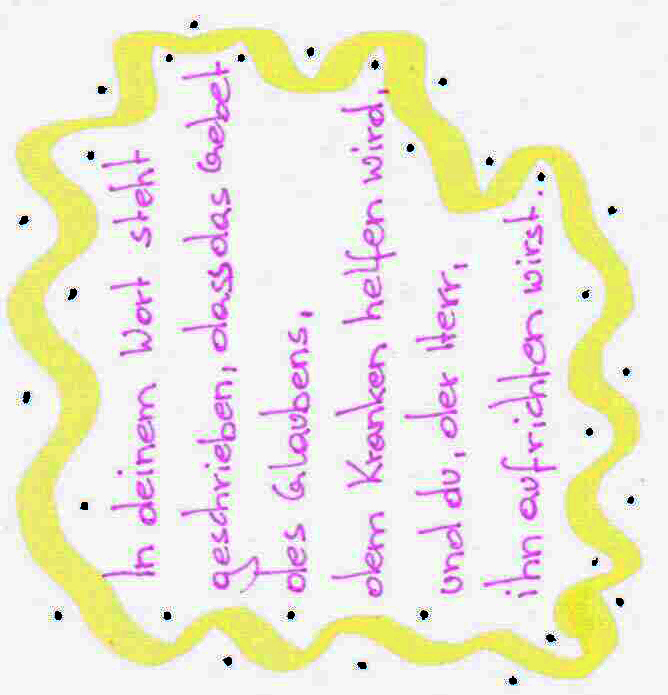 In deinem Wort steht
geschrieben, dass das Gebet
des Glaubens,
dem Kranken helfen wird,
und du, der Herr,
ihn aufrichten wirst.